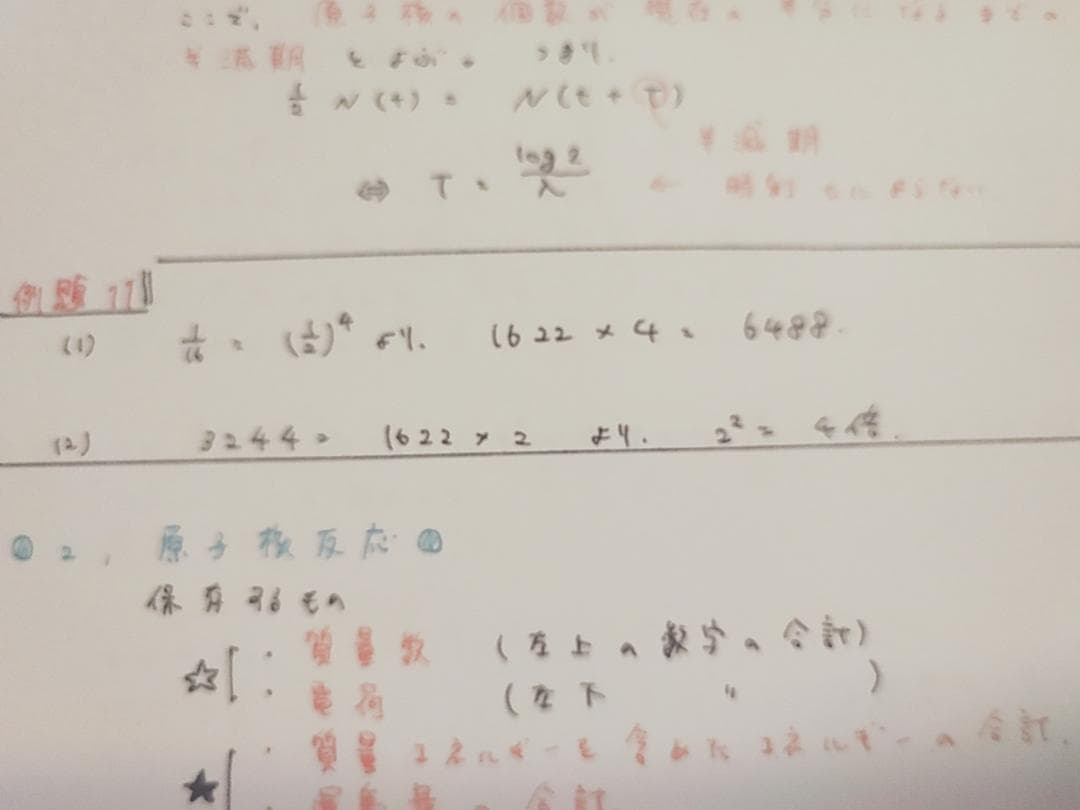 ここで、原子核の個数が現在の半分になるまでの
半減期をよぶ。つまり、
1/2 N(t) = N(t + T)
半減期
⇔ T = log 2 / λ ← 時刻tによらない
例題11
(1) 1/16 = (1/2)^4 より、1622 × 4 = 6488.
(2) 3244 = 1622 × 2 より、2^2 = 4倍.
2, 原子核反応
保存するもの
☆ ・質量数 (左上の数字の合計)
・電荷 (左下 〃 )
★ ・質量エネルギーを含めたエネルギーの合計.
・運動量の合計